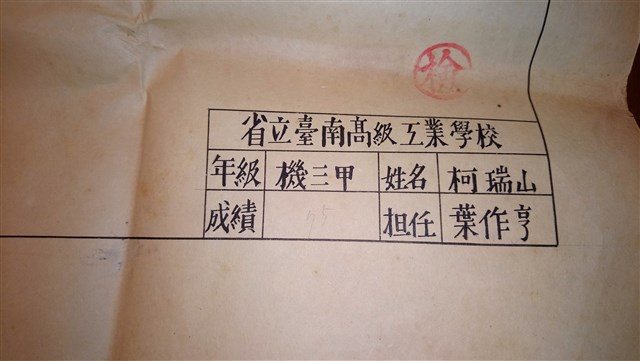 檢
省立臺南高級工業學校
年級 機三甲 姓名 柯瑞山
成績 75 担任 葉作亨